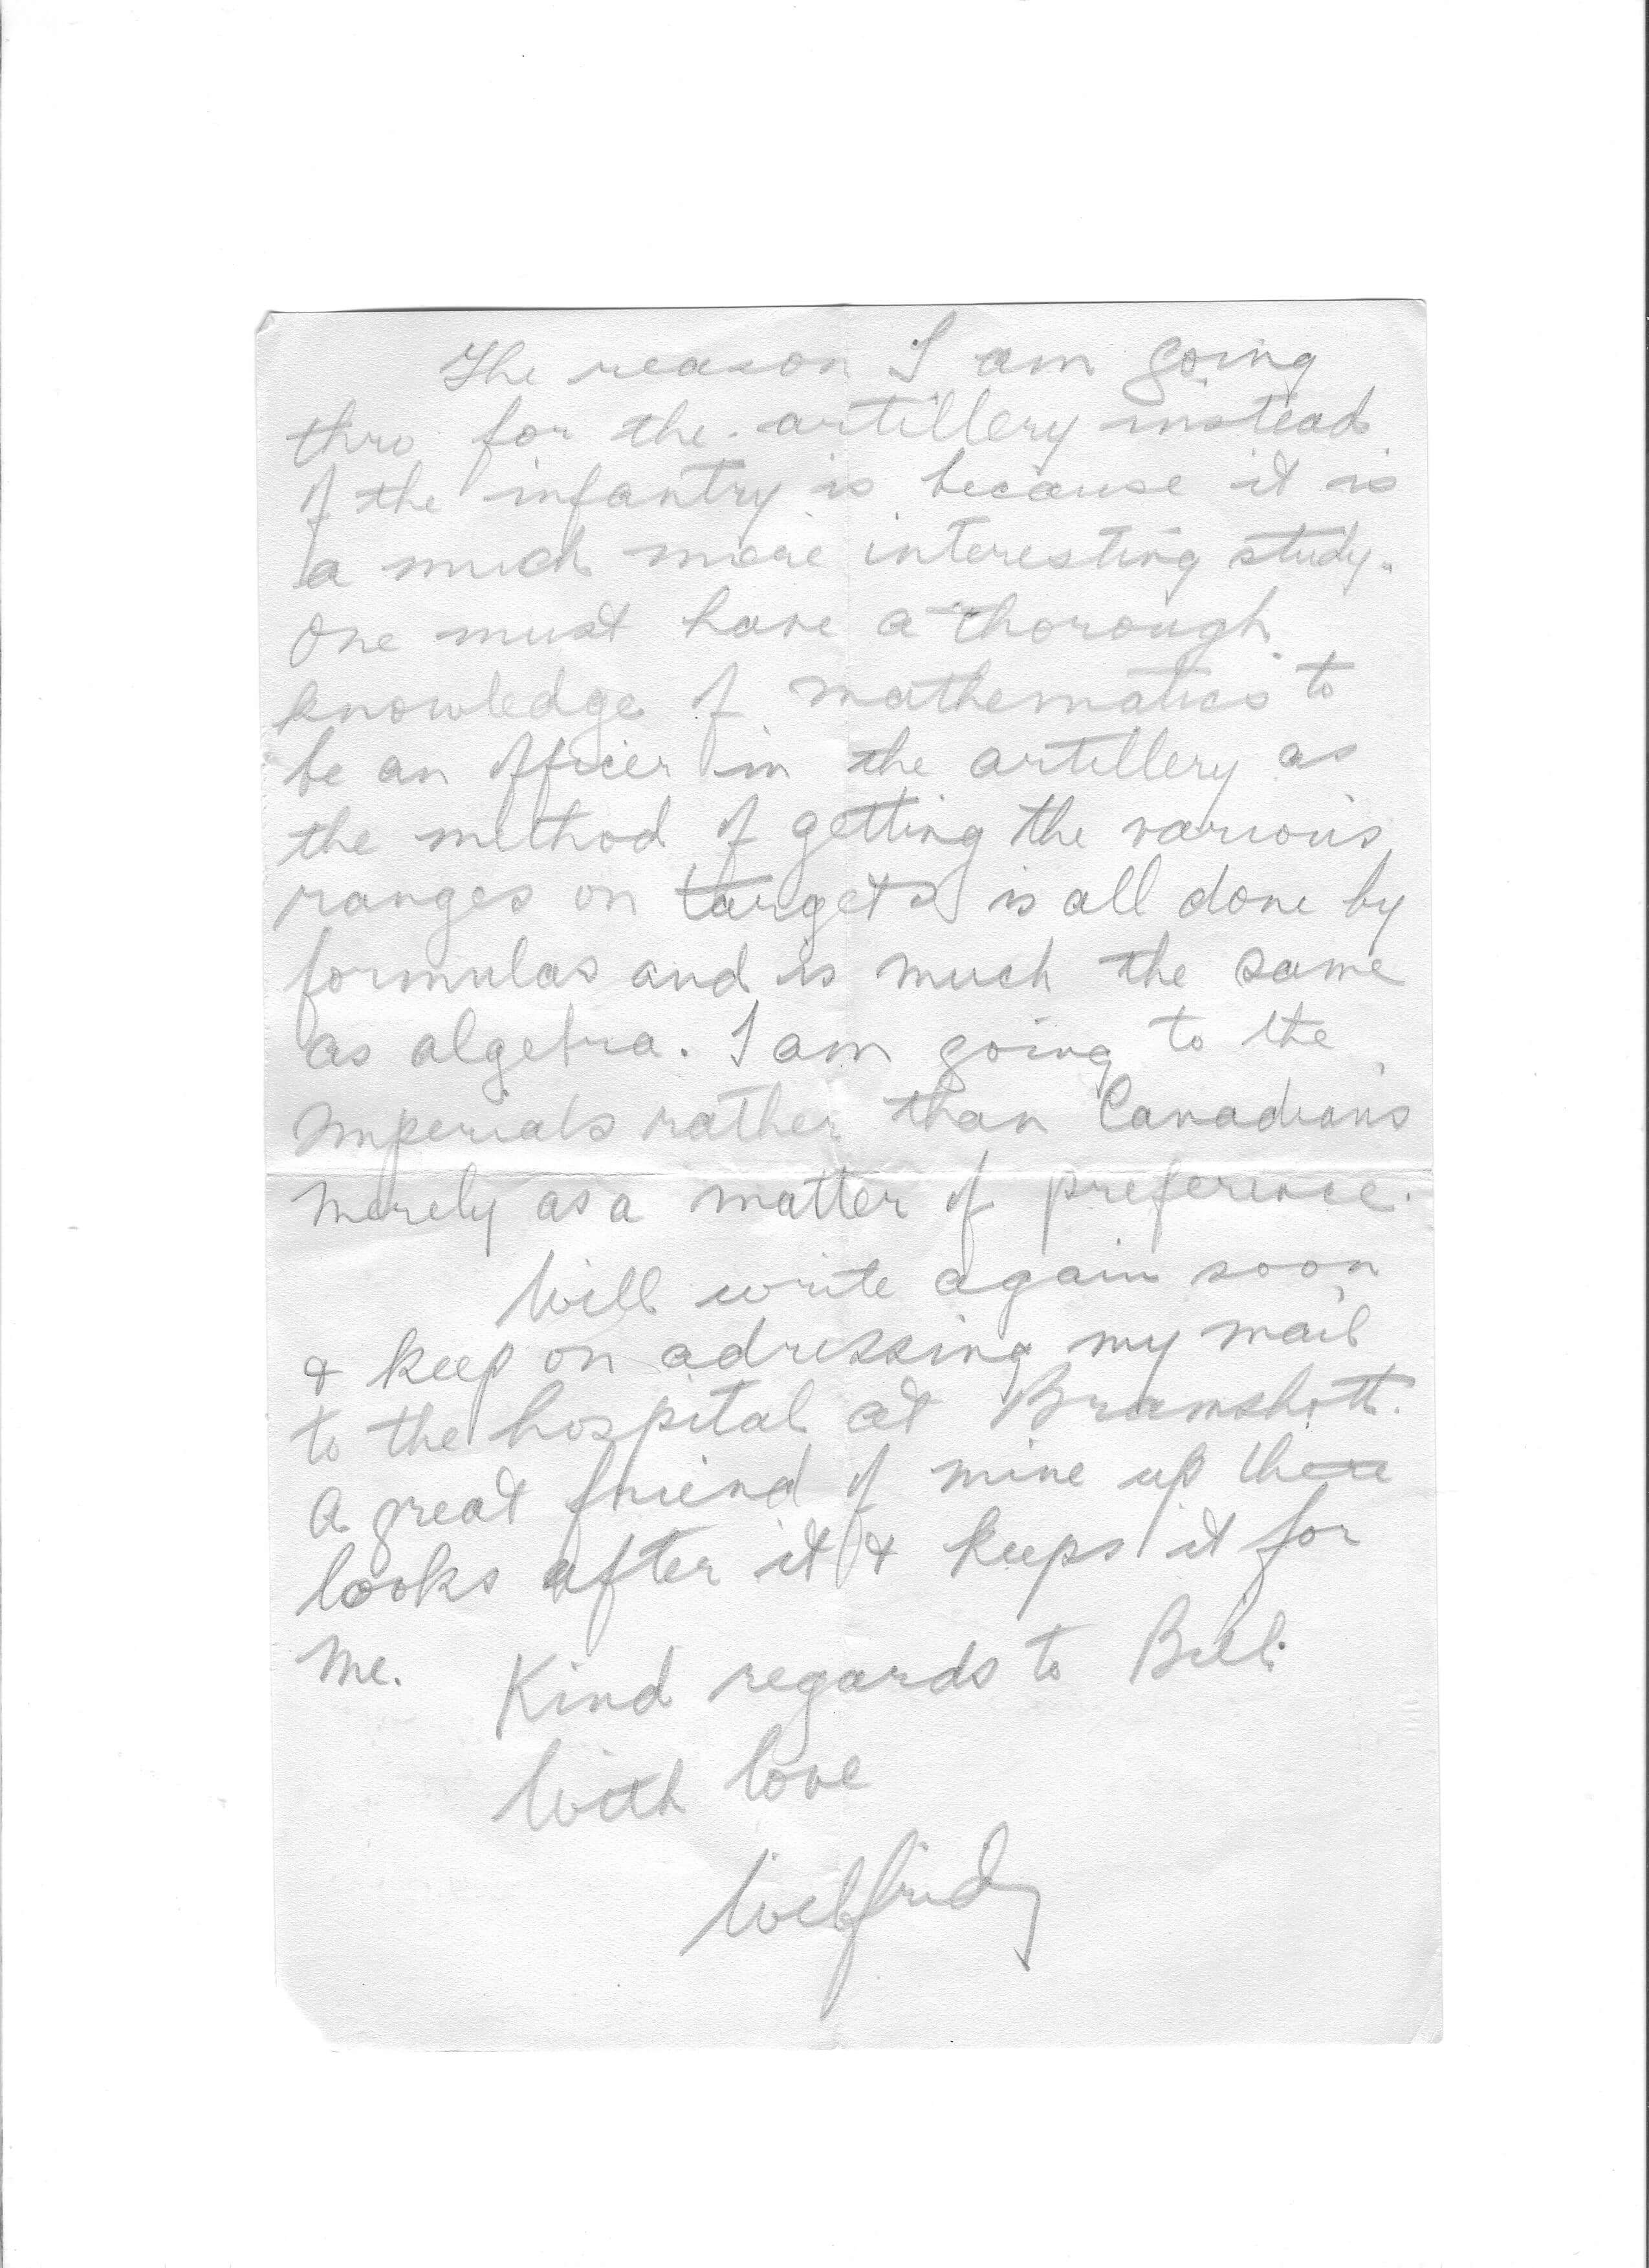 The reason I am going
thro for the artillery instead
of the infantry is because it is
a much more interesting study.
One must have a thorough
knowledge of mathematics to
be an officer in the artillery as
the method of getting the various
ranges on targets is all done by
formulas and is much the same
as algebra. I am going to the
Imperials rather than Canadians
merely as a matter of preference.
Will write again soon
& keep on adressing my mail
to the hospital at Bramshott.
A great friend of mine up there
looks after it & keeps it for
me. Kind regards to Bill.
With love
Wilfrid